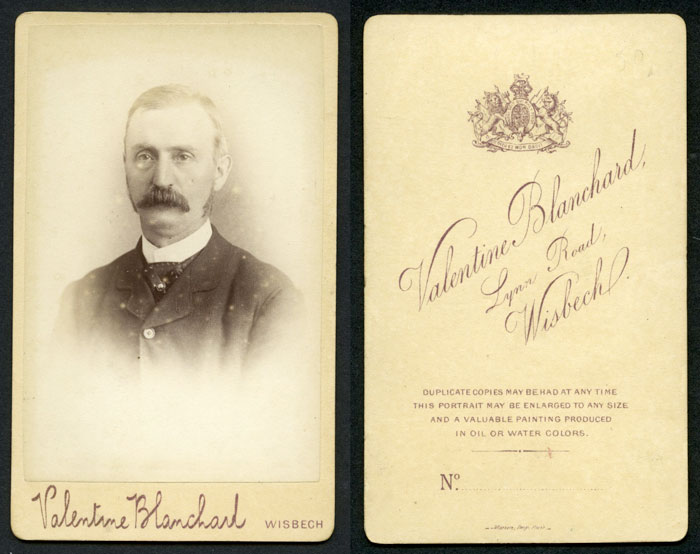 Valentine Blanchard
WISBECH
DIEU ET MON DROIT
Valentine Blanchard,
Lynn Road,
Wisbech.
DUPLICATE COPIES MAY BE HAD AT ANY TIME
THIS PORTRAIT MAY BE ENLARGED TO ANY SIZE
AND A VALUABLE PAINTING PRODUCED
IN OIL OR WATER COLORS.
Nº